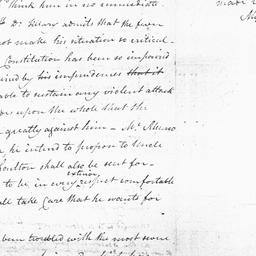 think him in no immediate
Dr. Tillary admits that the fever
not make his situation so critical
Constitution has been so impaired
by his imprudences that it
able to sustain any violent attack
upon the whole that the
greatly against him – Mr. Munro
he intend to propose to Uncle
Moulton shall also be sent for
to be in every respect comfortable
station
all take care that he wants for
been troubled with the most severe
made
My